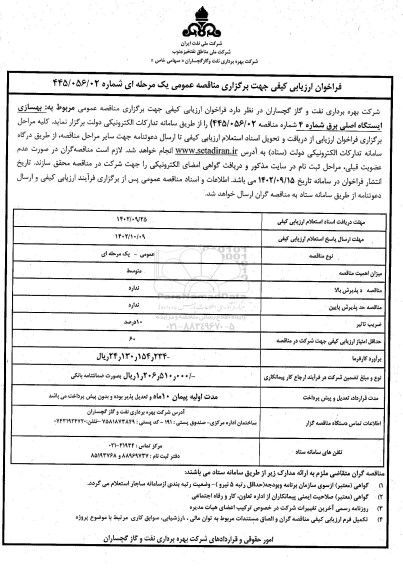 شرکت ملی نفت ایران
شرکت ملی مناطق نفتخیز جنوب
شرکت بهره برداری نفت و گاز گچساران « سهامی خاص »
فراخوان ارزیابی کیفی جهت برگزاری مناقصه عمومی یک مرحله ای شماره ۴۴۵/۰۵۶/۰۲
شرکت بهره برداری نفت و گاز گچساران در نظر دارد فراخوان ارزیابی کیفی جهت برگزاری مناقصه عمومی مربوط به: بهسازی
ایستگاه اصلی برق شماره ۴ شماره مناقصه ۴۴۵/۰۵۶/۰۲) را از طریق سامانه تدارکات الکترونیکی دولت برگزار نماید. کلیه مراحل
برگزاری فراخوان ارزیابی از دریافت و تحویل اسناد استعلام ارزیابی کیفی تا ارسال دعوتنامه جهت سایر مراحل مناقصه، از طریق درگاه
سامانه تدارکات الکترونیکی دولت (ستاد) به آدرس www.setadiran.ir انجام خواهد شد. لازم است مناقصه‌گران در صورت عدم
عضویت قبلی، مراحل ثبت نام در سایت مذکور و دریافت گواهی امضای الکترونیکی را جهت شرکت در مناقصه محقق سازند. تاریخ
انتشار فراخوان در سامانه تاریخ ۱۴۰۲/۰۹/۱۵ می باشد. اطلاعات و اسناد مناقصه عمومی پس از برگزاری فرآیند ارزیابی کیفی و ارسال
دعوتنامه از طریق سامانه ستاد به مناقصه گران ارسال خواهد شد.
مهلت دریافت اسناد استعلام ارزیابی کیفی ۱۴۰۲/۰۹/۲۵
مهلت ارسال پاسخ استعلام ارزیابی کیفی ۱۴۰۲/۱۰/۰۹
نوع مناقصه عمومی - یک مرحله ای
میزان اهمیت مناقصه متوسط
مناقصه پذیرش بالا ندارد
مناقصه حد پذیرش پایین ندارد
ضریب تاثیر ۱۰درصد
حداقل امتیاز ارزیابی کیفی جهت شرکت در مناقصه ۶۰
برآورد کارفرما ۲۴٫۱۳۰٫۱۵۴٫۲۳۴/- ریال
نوع و مبلغ تضمین شرکت در فرآیند ارجاع کار پیمانکاری ۱٫۲۰۶٫۵۱۰٫۰۰۰/- ریال بصورت ضمانتنامه بانکی
مدت قرارداد، تعدیل و پیش پرداخت مدت اولیه پیمان ۱۰ماه و تعدیل پذیر بوده و بدون پیش پرداخت می باشد
اطلاعات تماس دستگاه مناقصه گزار آدرس شرکت بهره برداری نفت و گاز گچساران
ساختمان اداره مرکزی- صندوق پستی : ۱۹۱ - کد پستی : ۷۵۸۱۸۷۳۸۴۹ -تلفن:
تلفن های سامانه ستاد مرکز تماس : ۴۱۹۳۴-۰۲۱
دفتر ثبت نام : ۸۸۹۶۹۷۳۷ و ۸۵۱۹۳۷۶۸
مناقصه گران متقاضی ملزم به ارائه مدارک زیر از طریق سامانه ستاد می باشند:
۱) گواهی (معتبر) ازسوی سازمان برنامه وبودجه(حداقل رتبه ۵ نیرو ) - وضعیت رتبه بندی ازسامانه ساجار استعلام می گردد.
۲) گواهی (معتبر) صلاحیت ایمنی پیمانکاران از اداره تعاون، کار و رفاه اجتماعی
۳) روزنامه رسمی آخرین تغییرات شرکت در خصوص ترکیب اعضای هیات مدیره
۴) تکمیل فرم ارزیابی کیفی مناقصه گران و الصاق مستندات مربوط به توان مالی ، ارزشیابی، سوابق کاری مرتبط با موضوع پروژه
امور حقوقی و قراردادهای شرکت بهره برداری نفت و گاز گچساران